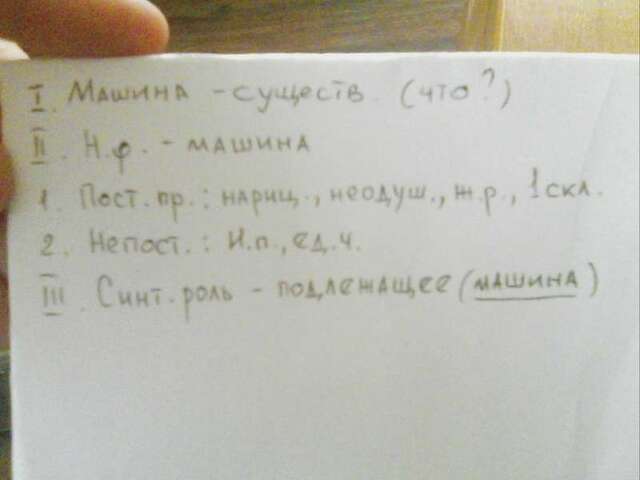 I. Машина - существ. (что?)
II. Н.ф. - машина
1. Пост.пр.: нариц., неодуш., ж.р., 1 скл.
2. Непост.: И.п., ед.ч.
III. Синт.роль - подлежащее (машина)